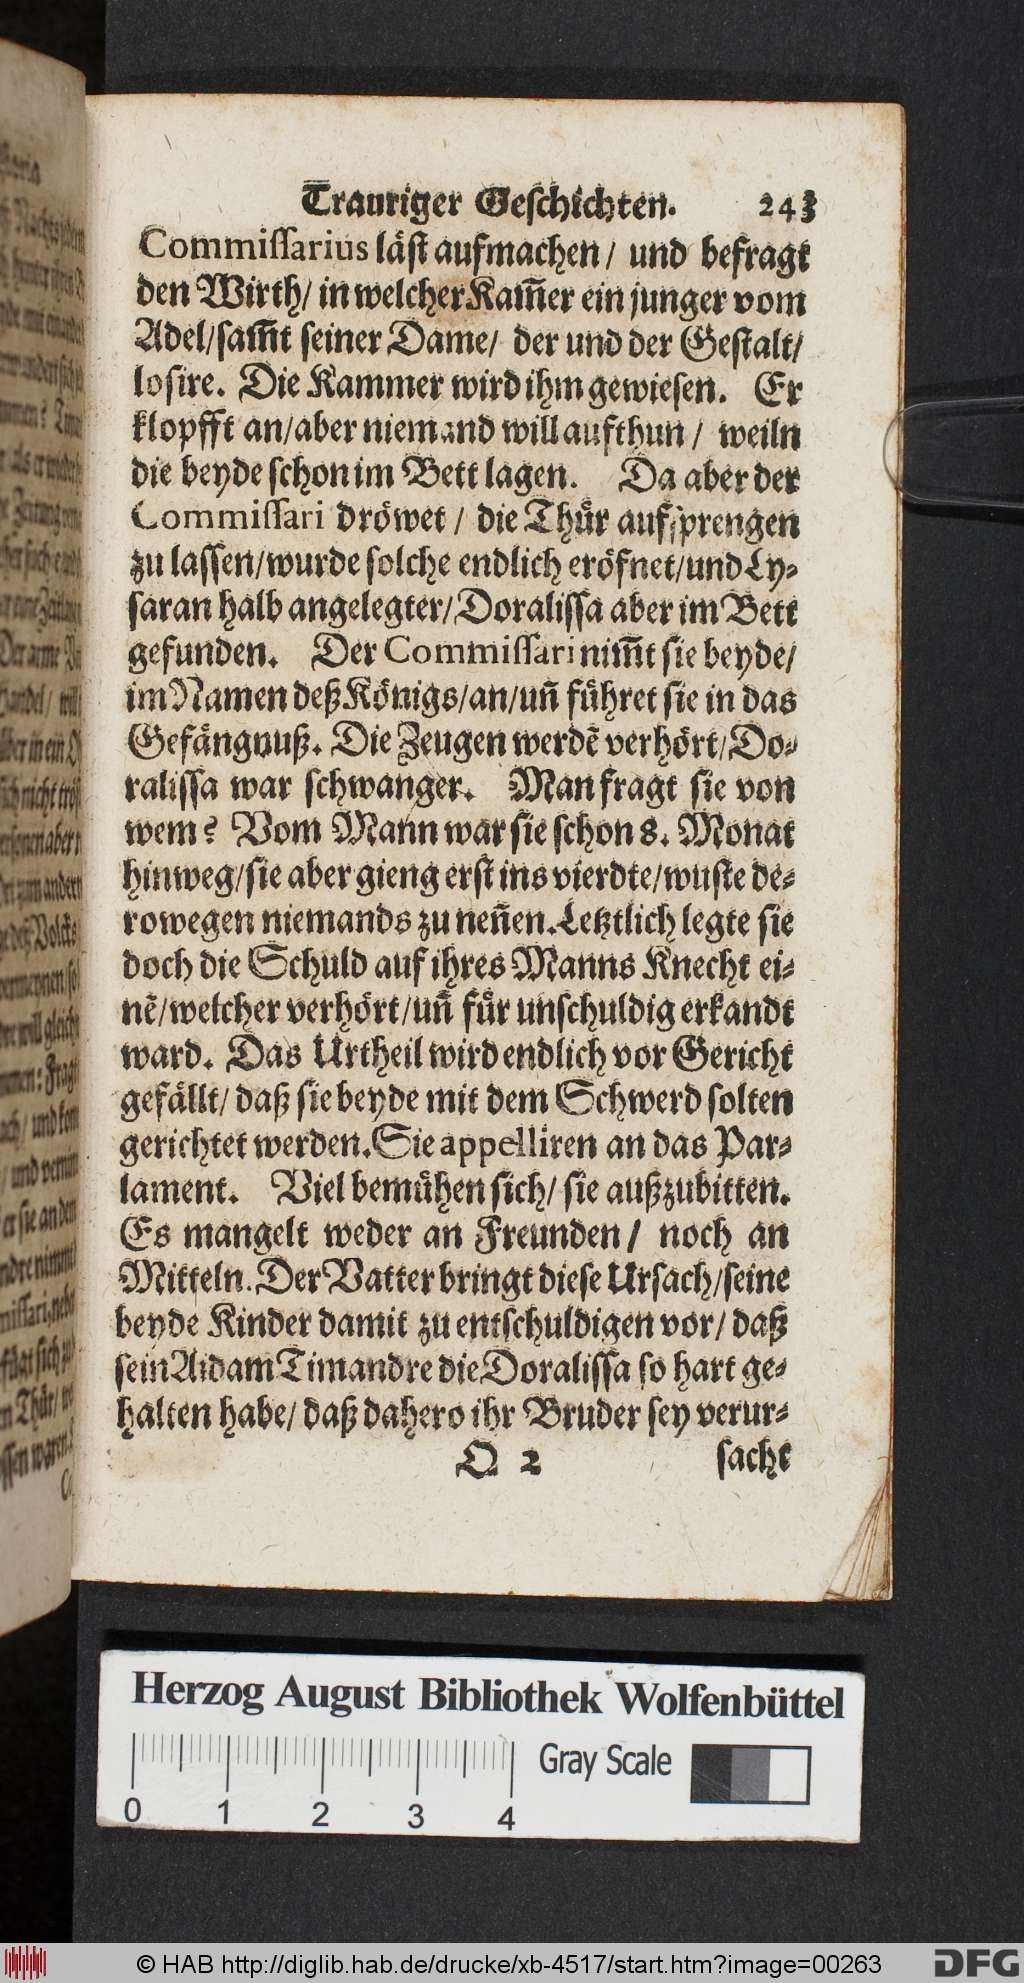 Trauriger Geschichten. 243
Commissarius läst aufmachen / und befragt
den Wirth / in welcher Kam̃er ein junger vom
Adel / sam̃t seiner Dame / der und der Gestalt /
losire. Die Kammer wird ihm gewiesen. Er
klopfft an / aber niemand will aufthun / weiln
die beyde schon im Bett lagen. Da aber der
Commissari dröwet / die Thür aufsprengen
zu lassen / wurde solche endlich eröfnet / und Ly-
saran halb angelegter / Doralissa aber im Bett
gefunden. Der Commissari nim̃t sie beyde /
im Namen deß Königs / an / uñ führet sie in das
Gefängnuß. Die Zeugen werdẽ verhört / Do-
ralissa war schwanger. Man fragt sie von
wem? Vom Mann war sie schon 8. Monat
hinweg / sie aber gieng erst ins vierdte / wuste de-
rowegen niemands zu neñen. Letztlich legte sie
doch die Schuld auf ihres Manns Knecht ei-
nẽ / welcher verhört / uñ für unschuldig erkandt
ward. Das Urtheil wird endlich vor Gericht
gefällt / daß sie beyde mit dem Schwerd solten
gerichtet werden. Sie appelliren an das Par-
lament. Viel bemühen sich / sie außzubitten.
Es mangelt weder an Freunden / noch an
Mitteln. Der Vatter bringt diese Ursach / seine
beyde Kinder damit zu entschuldigen vor / daß
sein Aidam Timandre die Doralissa so hart ge-
halten habe / daß dahero ihr Bruder sey verur-
Q 2 sacht
Herzog August Bibliothek Wolfenbüttel
Gray Scale
0 1 2 3 4
© HAB http://diglib.hab.de/drucke/xb-4517/start.htm?image=00263
DFG